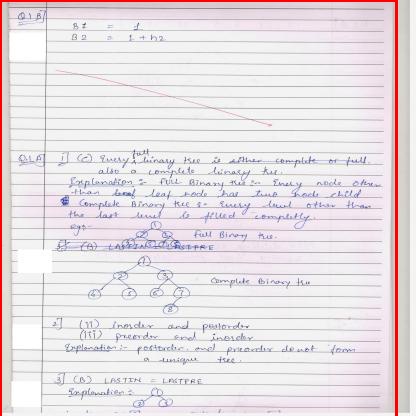 Q1B]
B1 = 1
B2 = 1 + h2
Q1A] 1] (C) Every full binary tree is either complete or full.
also a complete binary tree.
Explanation :- Full Binary tree :- Every node other
than leaf node has two node child
Complete Binary tree :- Every level other than
the last level is filled completly.
eg:- 1
2 3 Full Binary tree.
2] (B) LASTIN = LASTPRE
1
2 3 Complete Binary tree
4 5 6 7
8
2] (ii) Inorder and postorder
(iii) preorder and inorder
Explanation :- postorder and preorder do not form
a unique tree.
3] (B) LASTIN = LASTPRE
Explanation :- 1
2 3